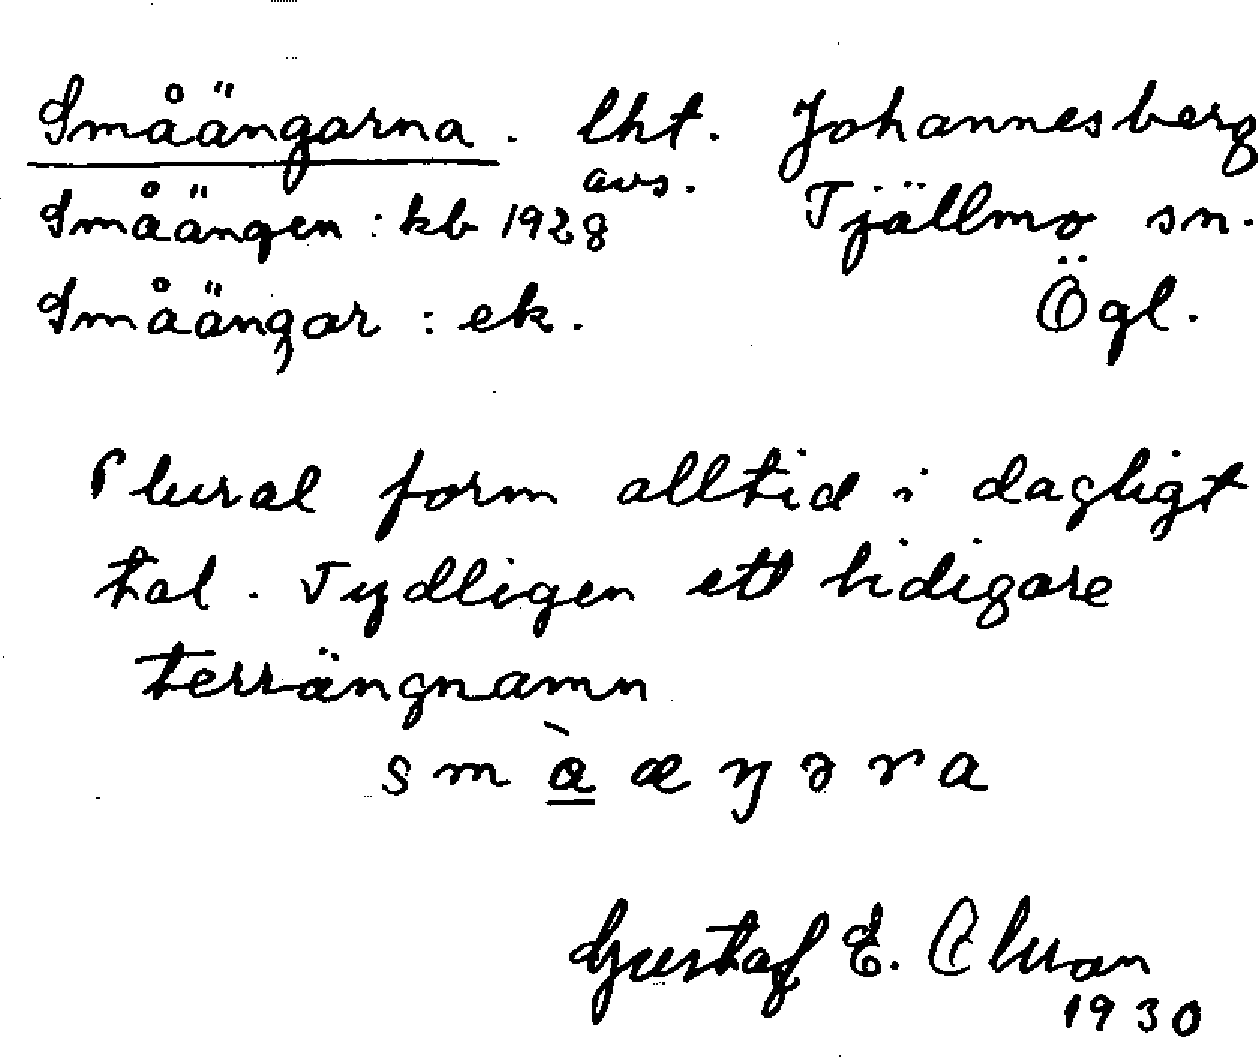 Småängarna. lht. Johannesberg
avs.
Småängen : kb 1928 Tjällmo sn.
Småängar : ek. Ögl.
Plural form alltid i dagligt
tal. Tydligen ett tidigare
terrängnamn
smàæŋəra
Gustaf E.
1930